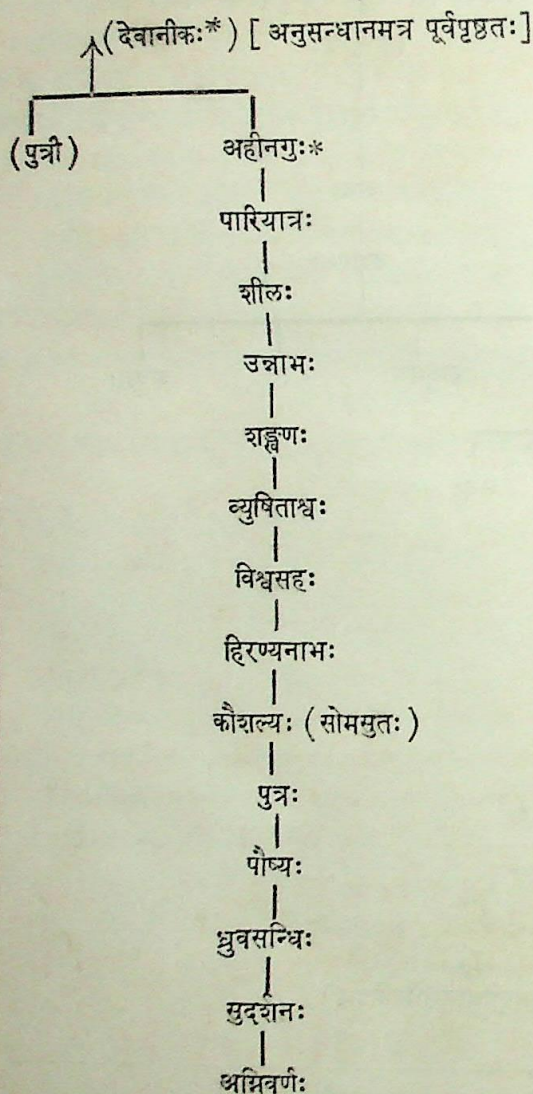 (देवानीकः*) [ अनुसन्धानमत्र पूर्वपृष्ठतः]
(पुत्री) अहीनगुः*
पारियात्रः
शीलः
उन्नाभः
शङ्खणः
व्युषिताश्वः
विश्वसहः
हिरण्यनाभः
कौशल्यः (सोमसुतः)
पुत्रः
पौष्यः
ध्रुवसन्धिः
सुदर्शनः
अग्निवर्णः